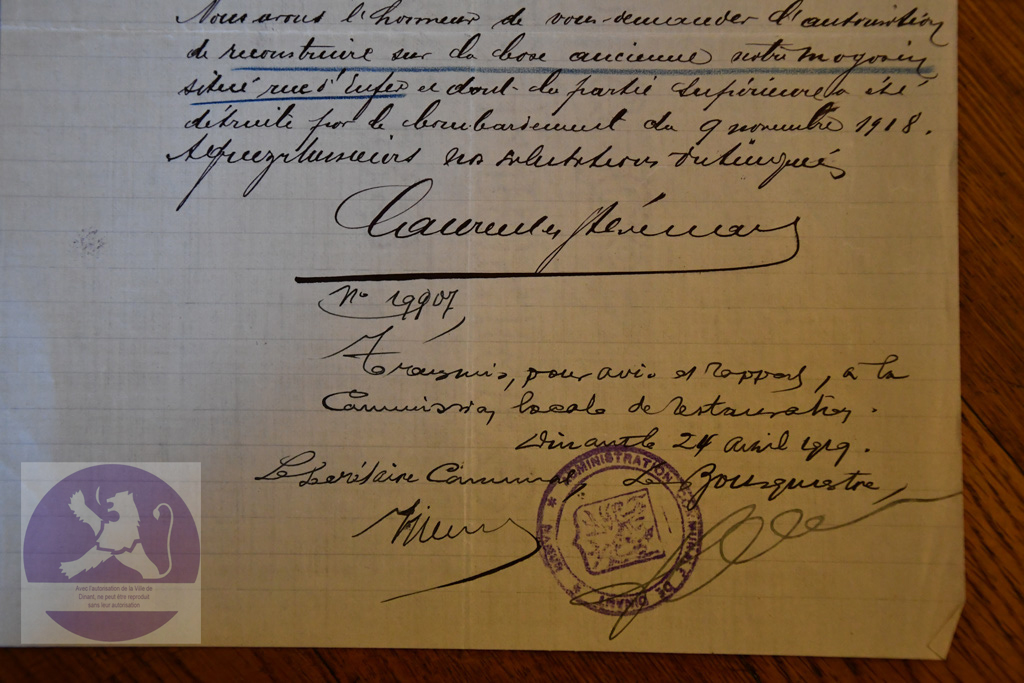 Nous avons l'honneur de vous demander l'autorisation
de reconstruire sur la base ancienne notre magasin
situé rue d'Enfer et dont la partie supérieure a été
détruite par le bombardement du 9 novembre 1918.
Agréez Messieurs nos salutations distinguées
N° 19907
Transmis, pour avis et rapport, à la
Commission locale de restauration.
Dinant le 24 avril 1919.
Le Secrétaire Communal, Le Bourgmestre,
ADMINISTRATION COMMUNALE DE DINANT
NAMUR
Avec l'autorisation de la Ville de
Dinant, ne peut être reproduit
sans leur autorisation